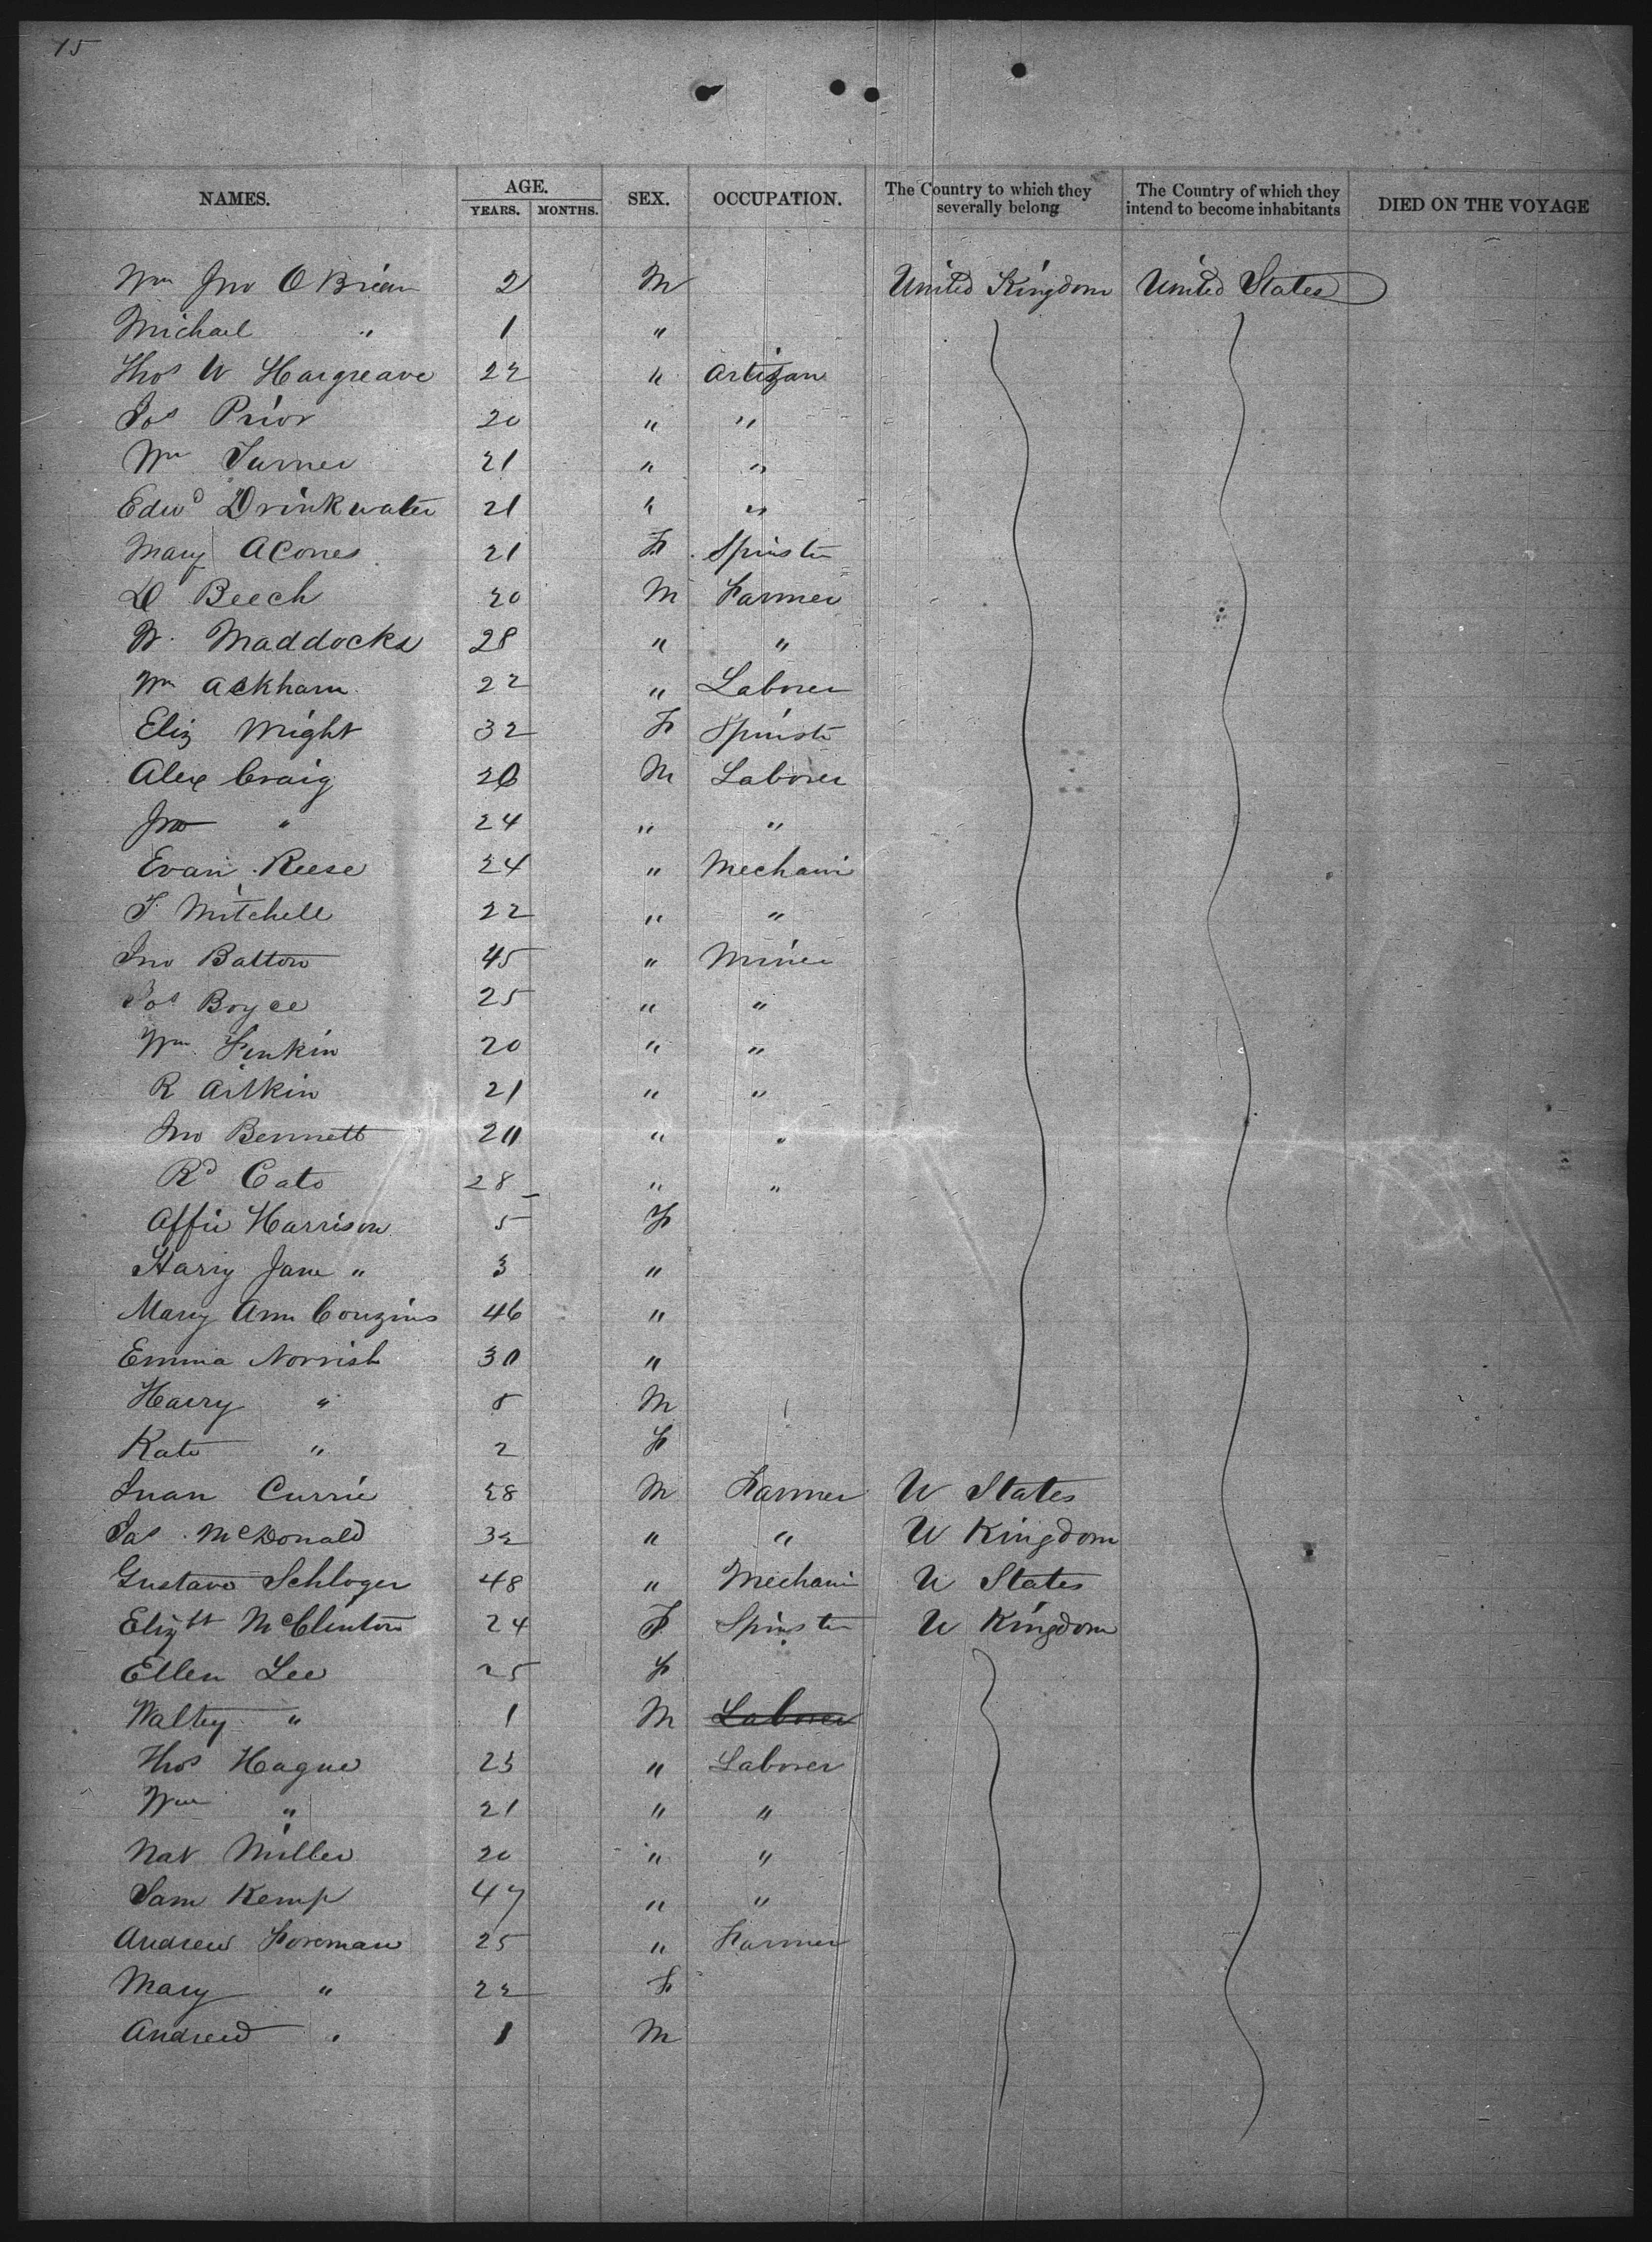 15
NAMES. AGE. YEARS. MONTHS. SEX. OCCUPATION. The Country to which they severally belong The Country of which they intend to become inhabitants DIED ON THE VOYAGE
Wm Jno O Brien 2 M United Kingdom United States
Michael " 1 "
Thos W Hargreave 22 " Artizan
Jos Prior 20 " "
Wm Turner 21 " "
Edwd Drinkwater 21 " "
Mary A Cones 21 F Spinster
D Beech 20 M Farmer
W. Maddocks 28 " "
Wm Ackham 22 " Laborer
Eliz Wright 32 F Spinst
Alex Craig 20 M Laborer
Jno " 24 " "
Evan Reese 24 " Mechani
T Mitchell 22 " "
Jno Batton 45 " Miner
Jos Boyce 25 " "
Wm Jenkin 20 " "
R Aitkin 21 " "
Jno Bennett 20 " "
Rd Cato 28 " "
Affie Harrison 5 F
Harry Jane " 3 "
Mary Ann Couzins 46 "
Emma Norrish 30 "
Harry " 5 M
Kate " 2 F
Currie 28 M Farmer U States
Jas McDonald 32 " " U Kingdom
Gustave Schloger 48 " Mechani U States
Elizth McClinton 24 F Spinster U Kingdom
Ellen Lee 25 F
Walter " 1 M Laborer
Thos Hague 23 " Laborer
Wm " 21 " "
Nat Miller 20 " "
Sam Kemp 47 " "
Andrew Foreman 25 " Farmer
Mary " 22 F
Andrew " 1 M